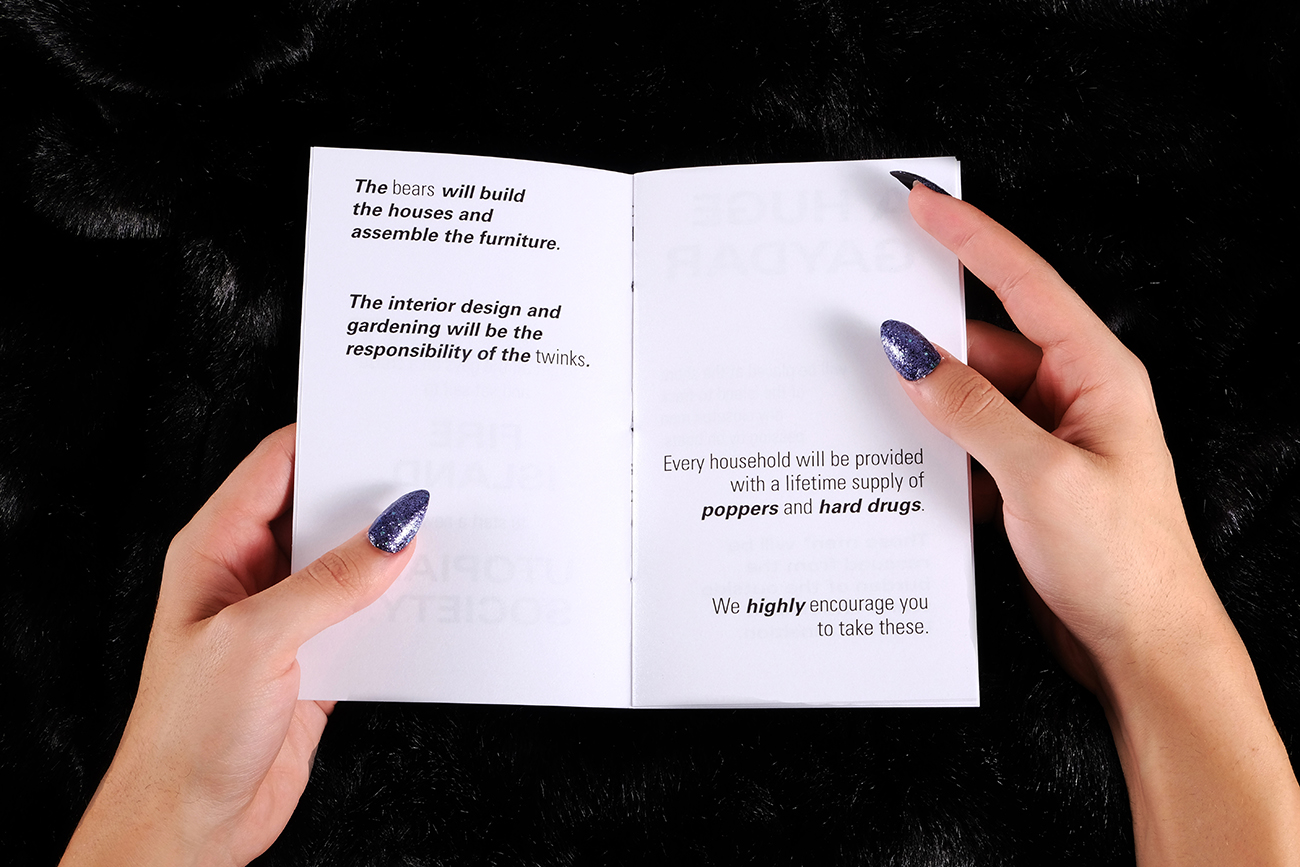 The bears will build
the houses and
assemble the furniture.
The interior design and
gardening will be the
responsibility of the twinks.
FIRE
ISLAND
UTOPIA
SOCIETY
HUGE
GAYDAR
Every household will be provided
with a lifetime supply of
poppers and hard drugs.
We highly encourage you
to take these.